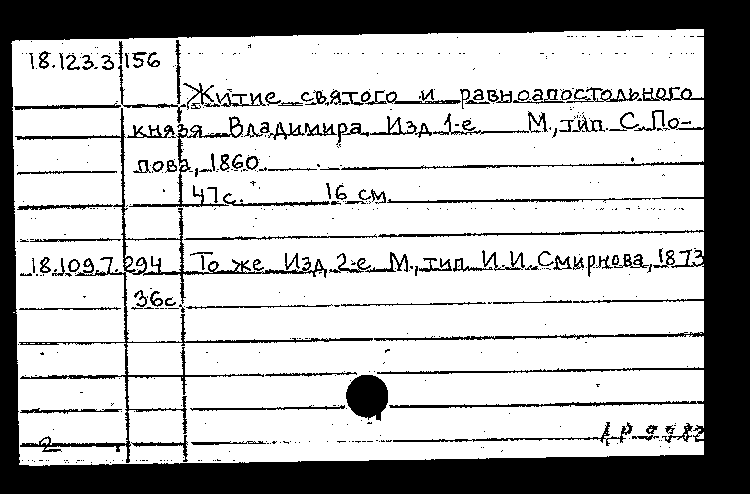 18.123.3.156
Житие святого и равноапостольного
князя Владимира. Изд. 1-е. М., тип. С. По-
пова, 1860.
47с. 16 см.
18.109.7.294 То же. Изд. 2-е. М., тип. И.И. Смирнова, 1873
36с.
2